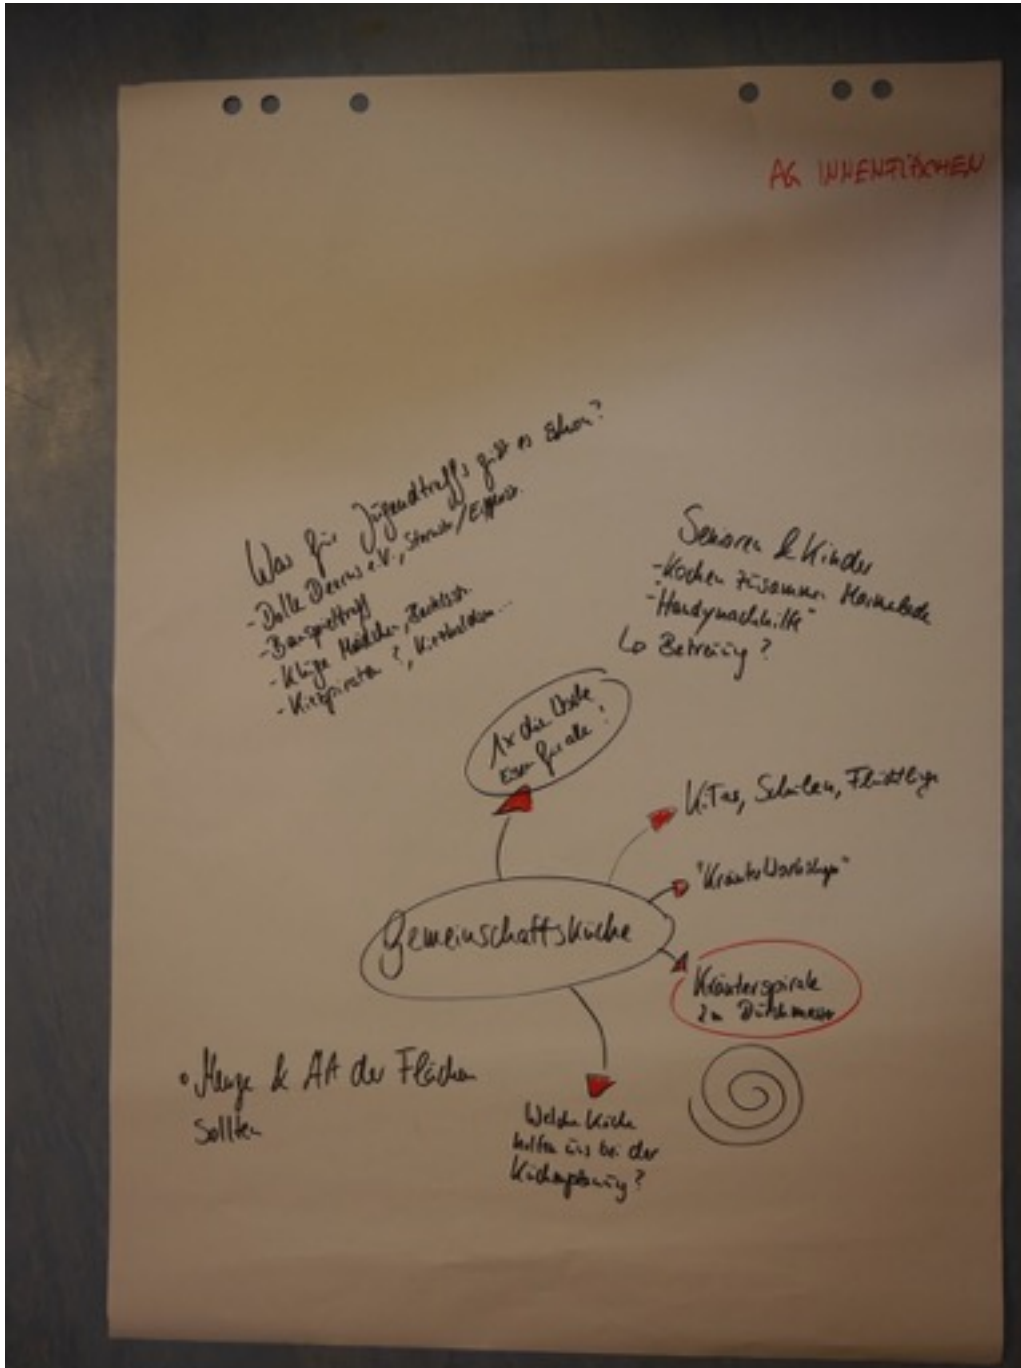 AG INNENFLÄCHEN
Was für Jugendtreffs gibt es schon?
- Dolle Deerns e.V., /
- Bauspieltreff
- Kluge Mädchen,
- Kiezpiraten ?, ...
Senioren & Kinder
- Kochen zusammen Marmelade
- "Handynachhilfe"
Betreuung ?
1x die Woche
Essen für alle !
KiTas, Schulen, Flüchtlinge
"KräuterWorkshops"
Gemeinschaftsküche
Kräuterspirale
2m Durchmesser
• Menge & Art der Flächen
sollten
Welche Köche
helfen uns bei der
Küchenplanung ?